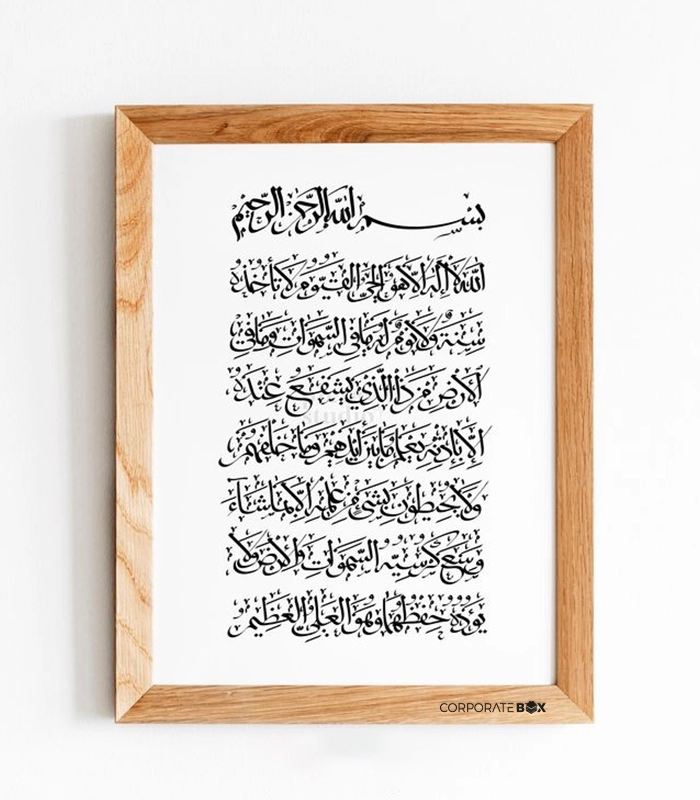 بسم الله الرحمن الرحيم
الله لا إله إلا هو الحي القيوم لا تأخذه
سنة ولا نوم له ما في السموات وما في
الأرض من ذا الذي يشفع عنده
إلا بإذنه يعلم ما بين أيديهم وما خلفهم
ولا يحيطون بشيء من علمه إلا بما شاء
وسع كرسيه السموات والأرض ولا
يؤده حفظهما وهو العلي العظيم
studio
CORPORATE BOX